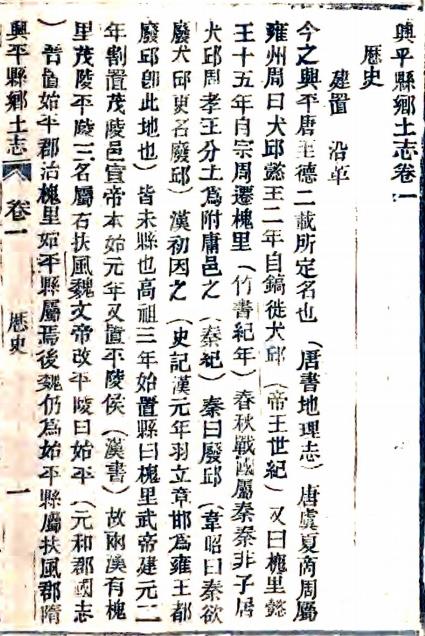 興平縣鄉土志卷一
歷史
建置 沿革
今之興平唐至德二載所定名也（唐書地理志）唐虞夏商周屬
雍州周曰犬邱懿王二年自鎬徙犬邱（帝王世紀）又曰槐里懿
王十五年自宗周遷槐里（竹書紀年）春秋戰國屬秦秦非子居
犬邱周孝王分土爲附庸邑之（秦紀）秦曰廢邱（韋昭曰秦欲
廢犬邱更名廢邱）漢初因之（史記漢元年羽立章邯爲雍王都
廢邱卽此地也）皆未縣也高祖三年始置縣曰槐里武帝建元二
年割置茂陵邑宣帝本始元年又置平陵侯（漢書）故兩漢有槐
里茂陵平陵三名屬右扶風魏文帝改平陵曰始平（元和郡國志
）晉置始平郡治槐里始平縣屬焉後魏仍爲始平縣屬扶風郡隋
興平縣鄉土志 卷一 歷史 一